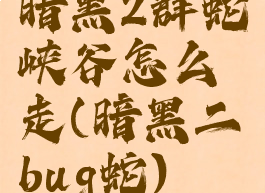 暗黑2群蛇
峡谷怎么
走(暗黑二
bug蛇)